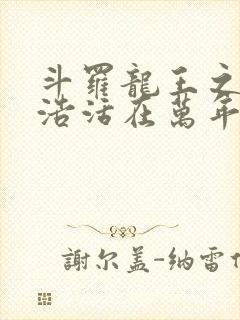 斗羅龍王之
浩活在萬年
謝尔盖-纳雷